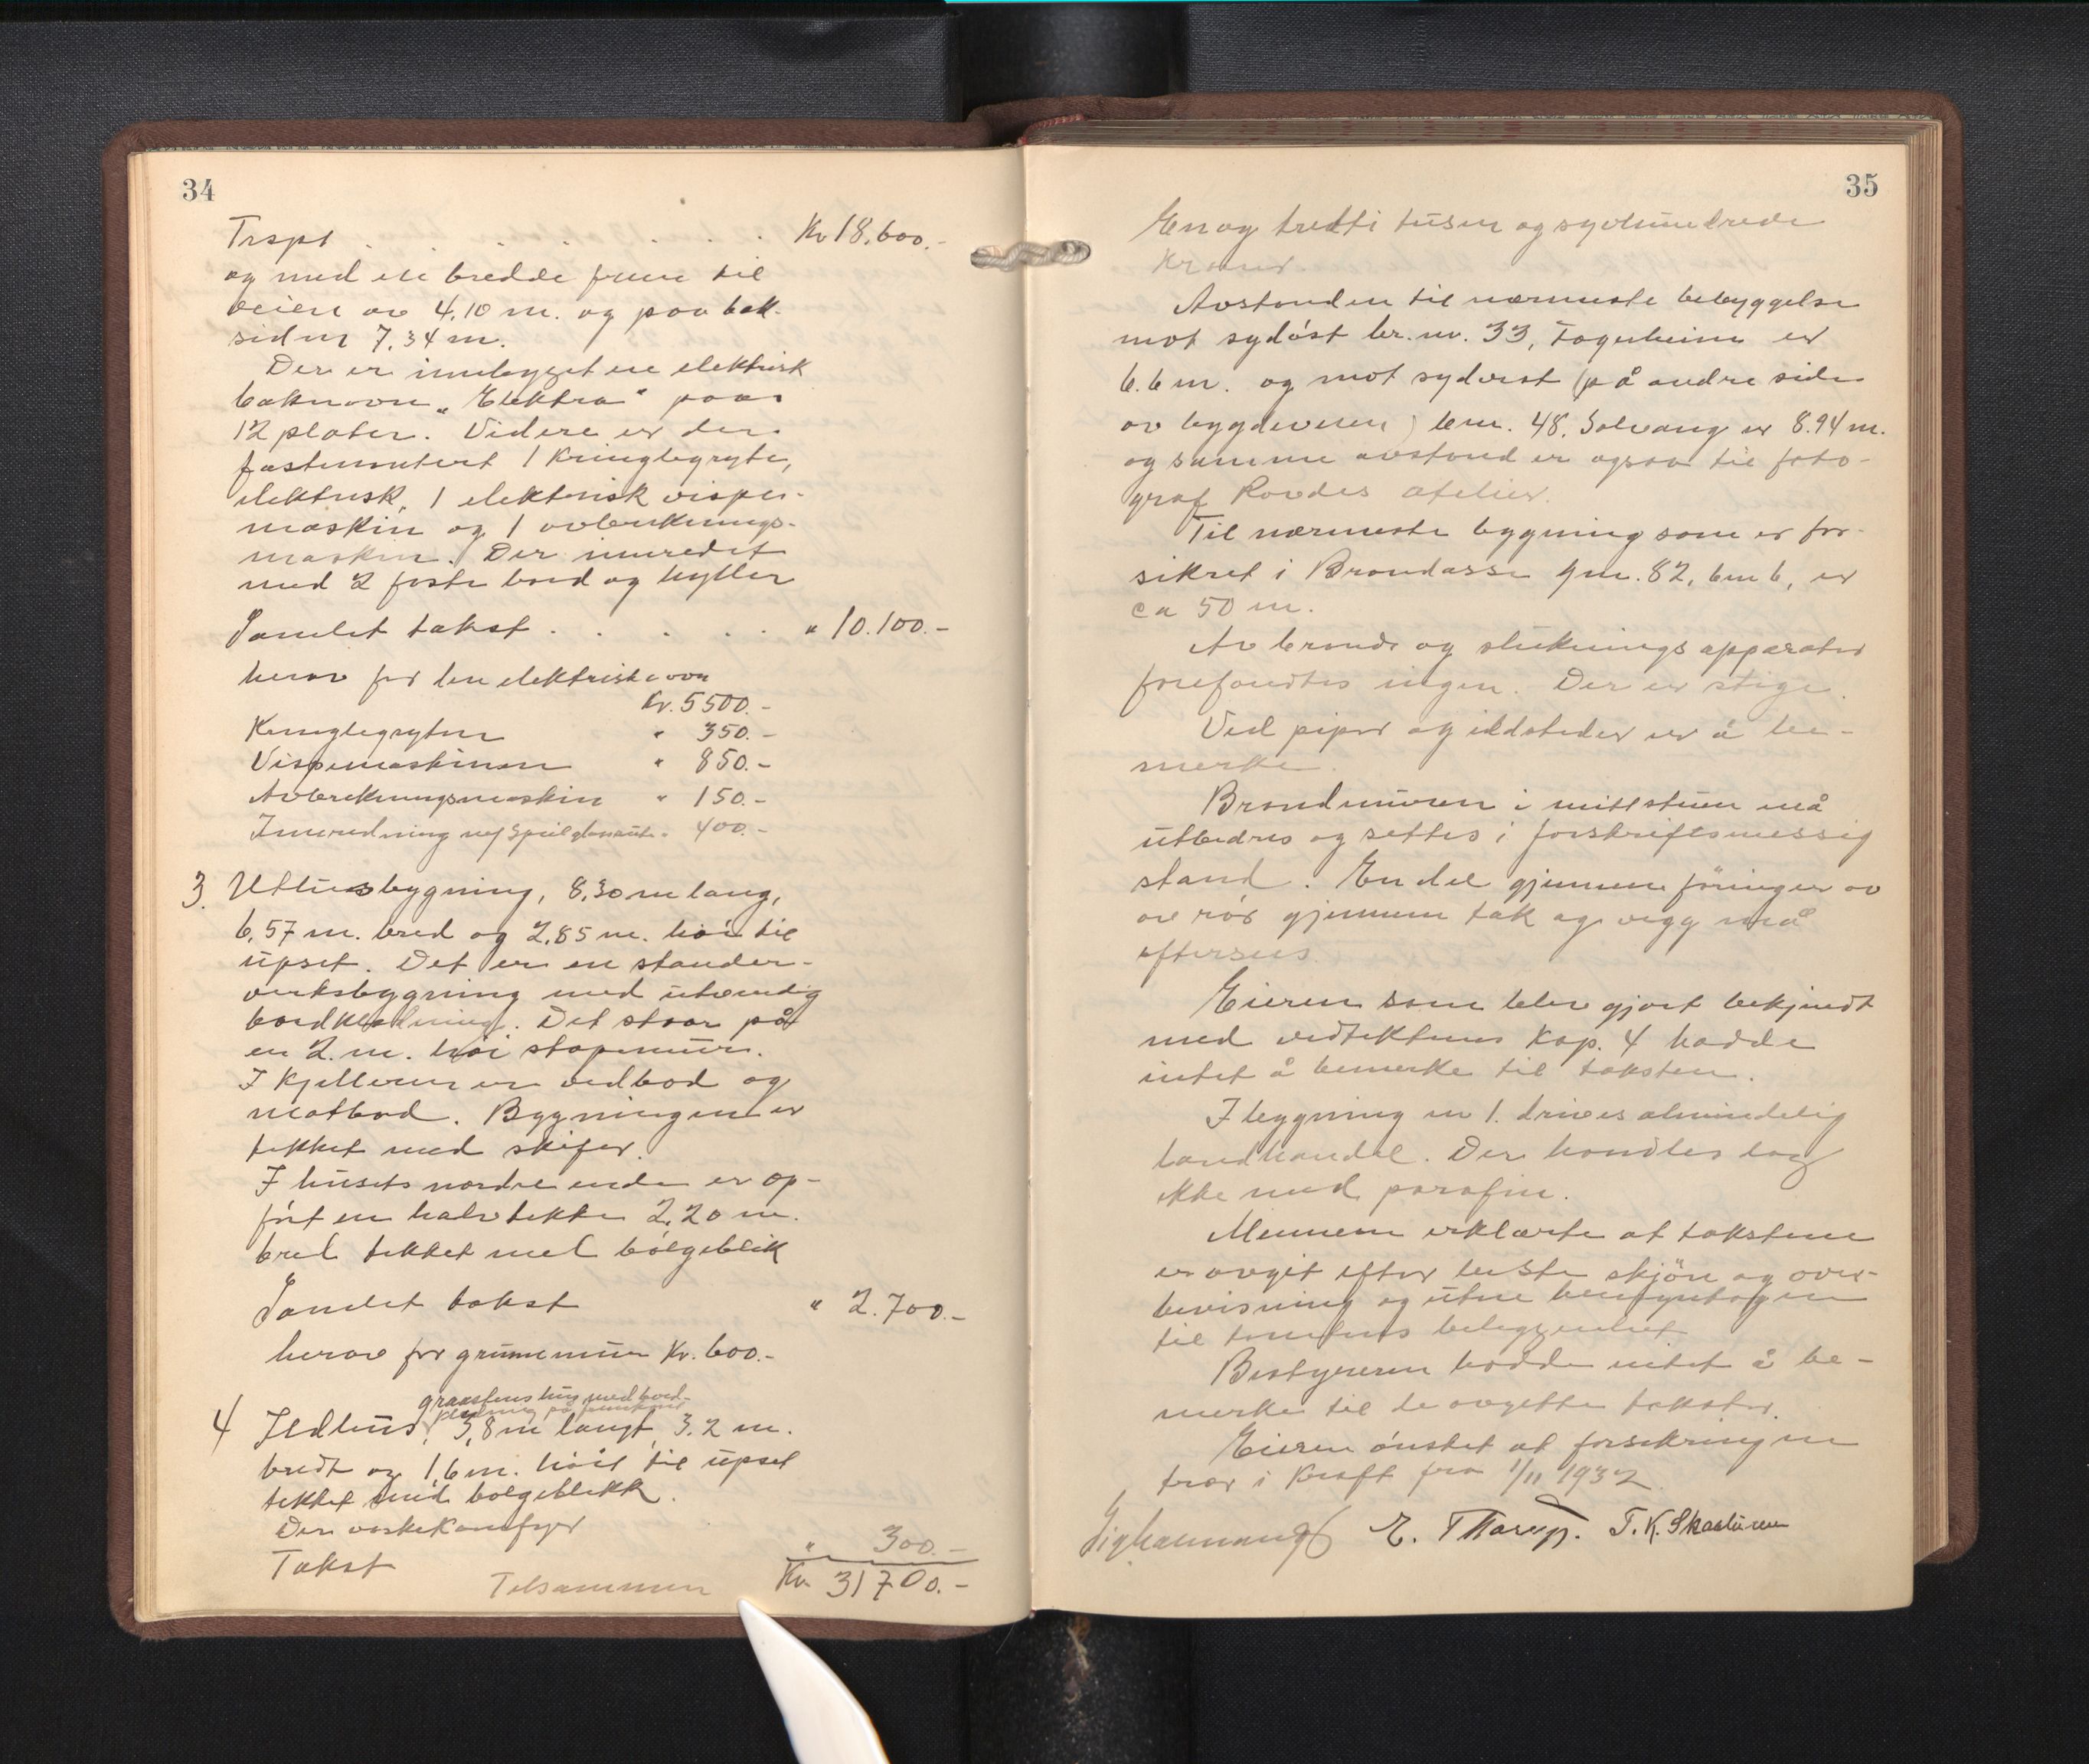 34
Trspt . . . . . . . Kr 18.600.-
og med en bredde frem til
veien av 4,10 m. og paa bak-
siden 7,34 m.
Der er innbygget en elektrisk
bakerovn „Elektra" paa
12 plater. Videre er der
fastmontert 1 Kringlegryte,
elektrisk, 1 elektrisk visper-
maskin og 1 avbrekknings-
maskin. Der innredet
med 2 faste bord og hyller
Samlet takst . . . . . " 10.100.-
herav for den elektriske ovn
Kr. 5500.-
Kringlegryten " 350.-
Vispemaskinen " 850.-
Avbrekningsmaskin " 150.-
Innredning m/ Speilglassrute " 400.-
3. Uthusbygning, 8,30 m lang,
6,57 m. bred og 2,85 m. høi til
upset. Det er en stander-
verksbygning med utvendig
bordkledning. Det staar på
en 2. m. høi støpemur.
I Kjelleren er vedbod og
matbod. Bygningen er
tekket med skifer.
I husets nordre ende er op-
ført en halvtekke 2,20 m.
bred tekket med bølgeblik
Samlet takst " 2.700.-
herav for grunnmur Kr. 600.-
graastens hus med bord-
kledning på
4 Ildhus, 3,8 m langt, 3.2 m.
bredt og 1,6 m. høit til upset
tekket med bølgeblekk.
Der vaskekomfyr
Takst " 300.-
Tilsammen Kr. 31700.-
35
En og tretti tusen og syvhundrede
Kroner.
Avstanden til nærmeste bebyggelse
mot sydøst br. nr. 33, Fagerheim er
6.6 m. og mot sydvest (på andre side
av bygdeveien) bnr. 48, Solvang er 8.94 m.
og samme avstand er ogsaa til foto-
graf atelier.
Til nærmeste bygning som er for-
sikret i Brandasse gnr. 82, bnr 6, er
ca 50 m.
Av brands og slukningsapparater
forefandtes ingen. Der er stige.
Ved piper og ildsteder er å be-
merke.
Brandmuren i mittstuen må
utbedres og settes i forskriftsmessig
stand. En del gjennemføringer av
ovnrør gjennem tak og vegg må
efterses.
Eieren som blev gjort bekjendt
med vedtektenes Kap. 4 hadde
intet å bemerke til taksten.
I bygning nr 1. drives almindelig
landhandel. Der handles dog
ikke med parafin.
Mennene erklærte at takstene
er avgit efter beste skjön og over-
bevisning og uten hensyntagen
til tomtens beliggenhet
Bestyreren hadde intet å be-
merke til de avgitte takster.
Eieren ønsket at forsikringen
trær i Kraft fra 1/11 1932.
E. Thorup. T. K. Skasturen